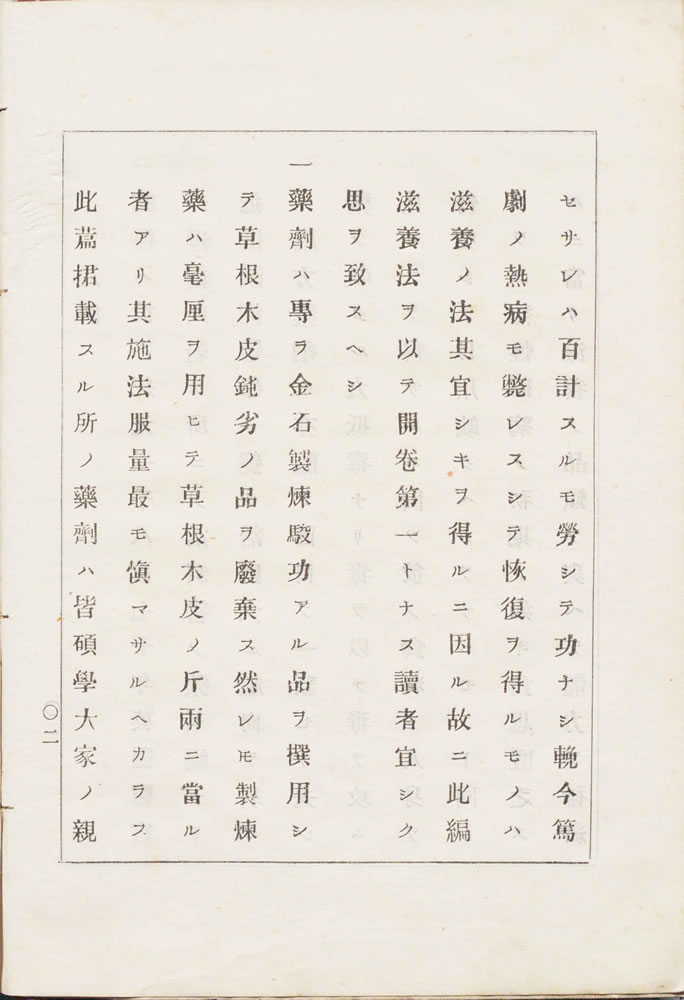 セサレハ百計スルモ勞シテ功ナシ輓今篤
劇ノ熱病モ斃レスシテ恢復ヲ得ルモノハ
滋養ノ法其宜シキヲ得ルニ因ル故ニ此編
滋養法ヲ以テ開卷第一トナス讀者宜シク
思ヲ致スヘシ
一藥劑ハ專ラ金石製煉駿功アル品ヲ撰用シ
テ草根木皮鈍劣ノ品ヲ廢棄ス然レ𪜈製煉
藥ハ毫厘ヲ用ヒテ草根木皮ノ斤兩ニ當ル
者アリ其施法服量最モ愼マサルヘカラス
此萹捃載スル所ノ藥劑ハ皆碩學大家ノ親
〇二